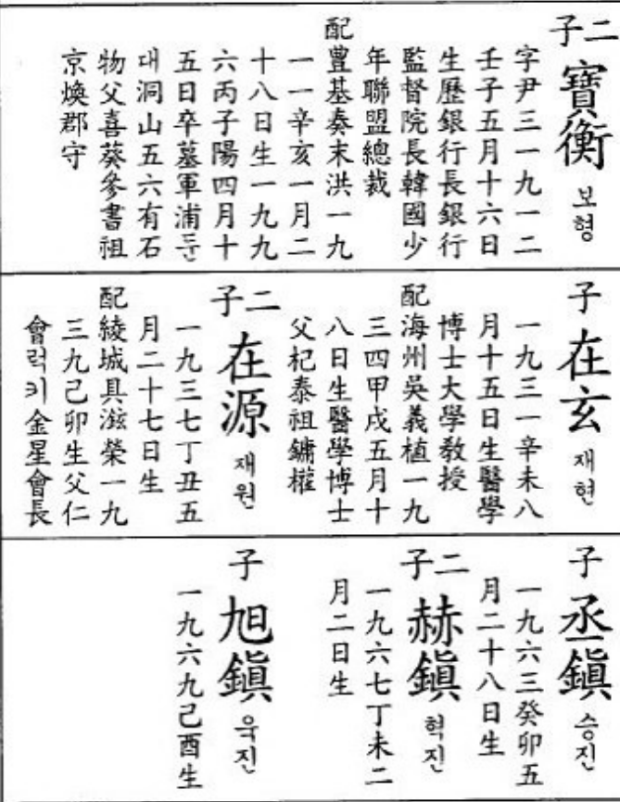 二子
寶衡 보형
字尹三一九一二
壬子五月十六日
生歷銀行長銀行
監督院長韓國少
年聯盟總裁
配豊基秦末洪一九
一一辛亥一月二
十八日生一九九
六丙子陽四月十
五日卒墓軍浦둔
대洞山五六有石
物父喜葵參書祖
京煥郡守
子
在玄 재현
一九三一辛未八
月十五日生醫學
博士大學敎授
配海州吳義植一九
三四甲戌五月十
八日生醫學博士
父杞泰祖鏞權
二子
在源 재원
一九三七丁丑五
月二十七日生
配綾城具滋榮一九
三九己卯生父仁
會럭키金星會長
子
丞鎭 승진
一九六三癸卯五
月二十八日生
二子
赫鎭 혁진
一九六七丁未二
月二日生
子
旭鎭 욱진
一九六九己酉生